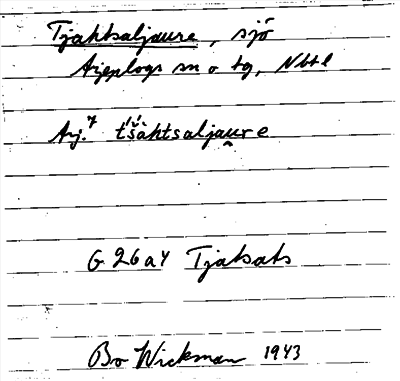 Tjahtsaljaure, sjö
Arjeplogs sn o tg, Nbtl
Arj.⁷ t́š̀ahtsaljau̯re
G 26 a 4 Tjatsats
Bo Wickman 1943